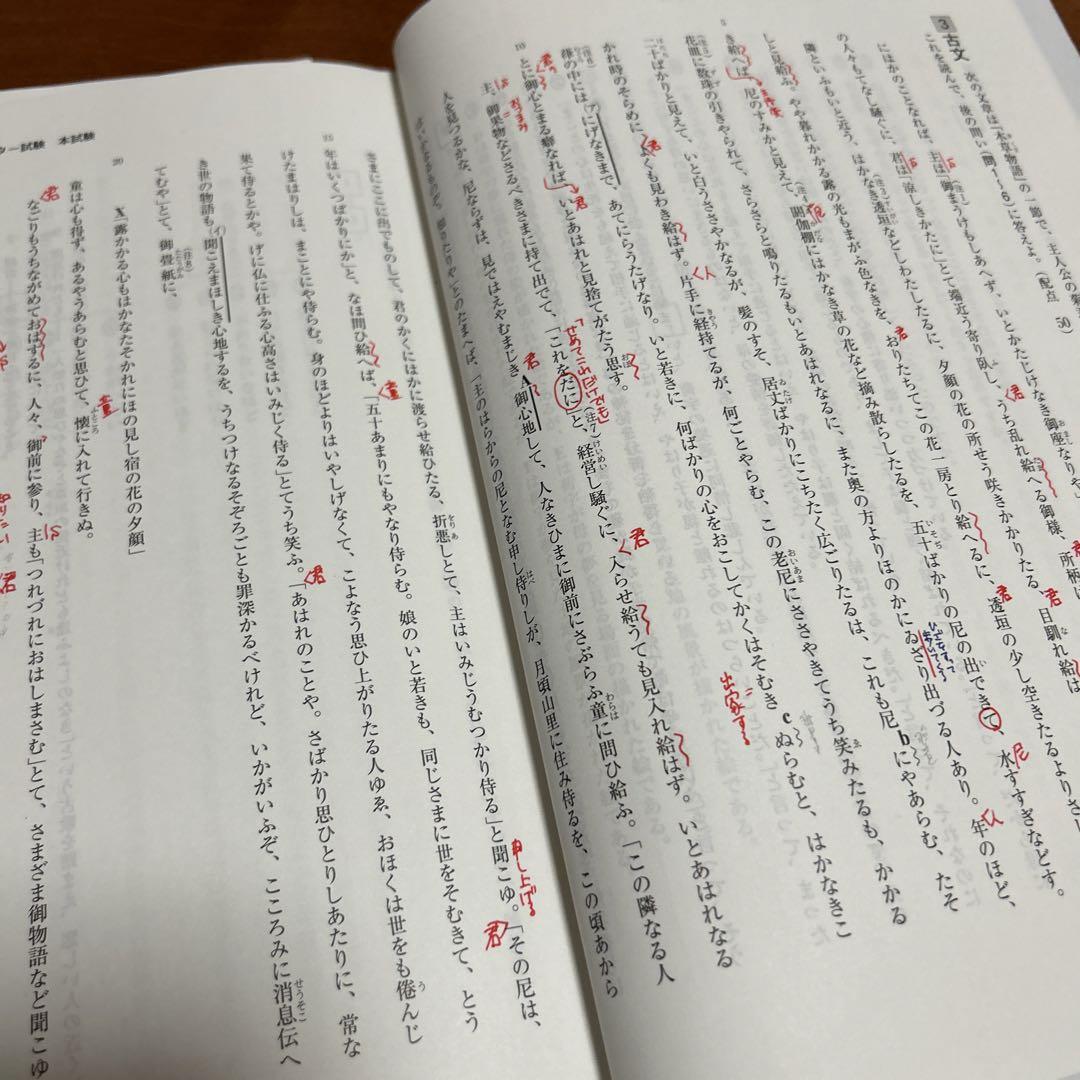 3 古文 次の文章は『木草物語』の一節で、主人公の菊
これを読んで、後の問い(問1~6)に答えよ。(配点 50)
にほかのことなれば、主は「御まうけもしあへず、いとかたじけなき御座なりや」
の人々もてなし騒ぐに、君は「涼しきかたに」とて端近う寄り臥し、うち乱れ給へる御様、所柄は
隣といふもいと近う、はかなき透垣などしわたしたるに、夕顔の花の所せう咲きかかりたる、目馴れ給は
しと見給ふ。やや暮れかかる露の光もまがふ色なきを、おりたちてこの花一房とり給へるに、透垣の少し空きたるよりさし
き給へば、尼のすみかと見えて、閼伽棚にはかなき草の花など摘み散らしたるを、五十ばかりの尼の出できて、水すすぎなどす。
花皿に数珠の引きやられて、さらさらと鳴りたるもいとあはれなるに、また奥の方よりほのかにゐざり出づる人あり。年のほど、
二十ばかりと見えて、いと白うささやかなるが、髪のすそ、居丈ばかりにこちたく広ごりたるは、これも尼bにやあらむ、たそ
かれ時のそらめに、よくも見わき給はず。片手に経持てるが、何ごとやらむ、この老尼にささやきてうち笑みたるも、かかる
葎の中には(ア)にげなきまで、あてにらうたげなり。いと若きに、何ばかりの心をおこしてかくはそむきcぬらむと、はかなきこ
とに御心とまる癖なれば、いとあはれと見捨てがたう思す。
主、御果物などさるべきさまに持て出でて、「これをだに」と、経営し騒ぐに、入らせ給うても見入れ給はず。いとあはれなる
人を見つるかな、尼ならずは、見ではえやむまじきA御心地して、人なきひまに御前にさぶらふ童に問ひ給ふ。「この隣なる人
とのたまへば、「主のはらからの尼となむ申し侍りしが、月頃山里に住み侍るを、この頃あから
さまにここに出でものして、君のかくにはかに渡らせ給ひたる、折悪しとて、主はいみじうむつかり侍る」と聞こゆ。「その尼は、
年はいくつばかりにか」と、なほ問ひ給へば、「五十あまりにもやなり侍らむ。娘のいと若きも、同じさまに世をそむきて、とう
けたまはりしは、まことにや侍らむ。身のほどよりはいやしげなくて、こよなう思ひ上がりたる人ゆゑ、おほくは世をも倦んじ
果て侍るとかや。げに仏に仕ふる心高さはいみじく侍る」とてうち笑ふ。「あはれのことや。さばかり思ひとりしあたりに、常な
き世の物語も(イ)聞こえまほしき心地するを、うちつけなるそぞろごとも罪深かるべけれど、いかがいふぞ、こころみに消息伝へ
てむや」とて、御畳紙に、
X「露かかる心もはかなたそかれにほの見し宿の花の夕顔」
童は心も得ず、あるやうあらむと思ひて、懐に入れて行きぬ。
なごりもうちながめておはするに、人々、御前に参り、主も「つれづれにおはしまさむ」とて、さまざま御物語など聞こゆ
ター試験 本試験
5
10
15
20
君
童
尼
せめてこれだけでも
おつまみ
出家する
申し上げる